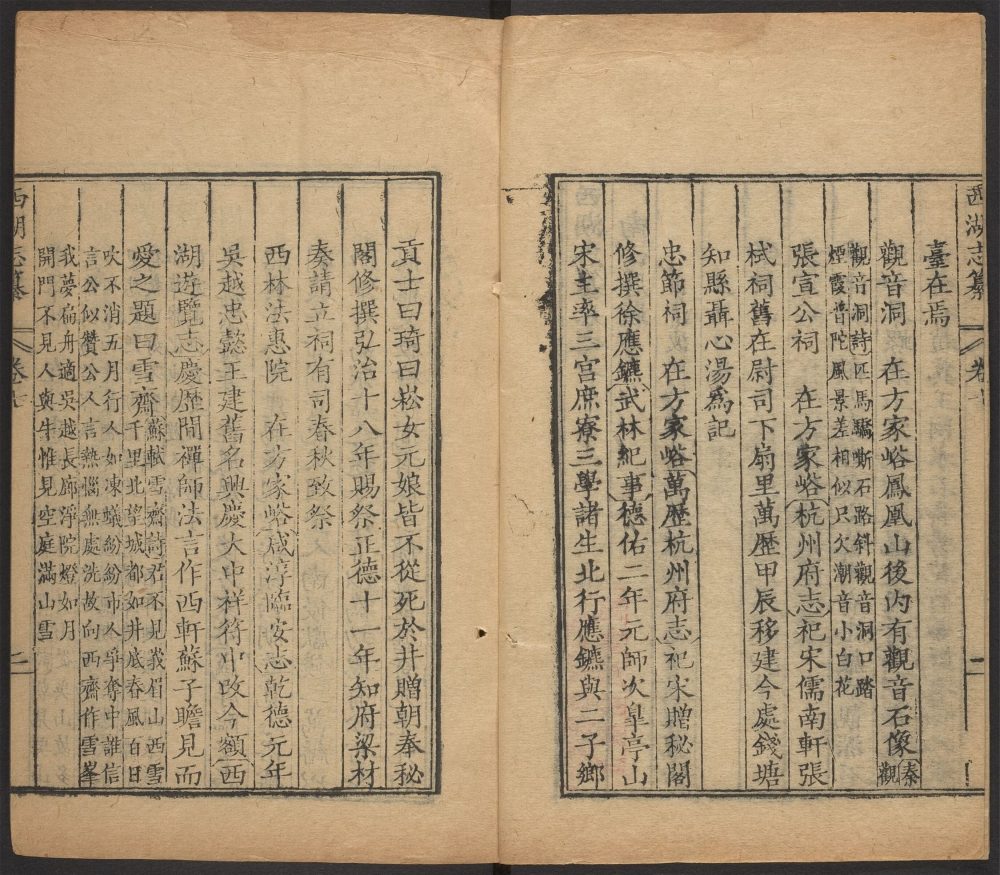 西湖志纂 卷十 二
臺在焉
觀音洞 在方家峪鳳凰山後内有觀音石像秦觀
觀音洞詩匹馬驕嘶石路斜觀音洞口踏
煙霞普陀風景差相似只欠潮音小白花
張宣公祠 在方家峪杭州府志祀宋儒南軒張
栻祠舊在尉司下扇里萬歷甲辰移建今處錢塘
知縣聶心湯為記
忠節祠 在方家峪萬歷杭州府志祀宋贈秘閣
修撰徐應鑣武林紀事德佑二年元師次臯亭山
宋主率三宮庶寮三學諸生北行應鑣與二子鄉
貢士曰琦曰崧女元娘皆不從死於井贈朝奉秘
閣修撰弘治十八年賜祭正德十一年知府梁材
奏請立祠有司春秋致祭
西林法惠院 在方家峪咸淳臨安志乾德元年
吳越忠懿王建舊名興慶大中祥符中改今額西
湖遊覽志慶歷間禪師法言作西軒蘇子瞻見而
愛之題曰雪齋蘇軾雪齋詩君不見峩眉山西雪
千里北望城都如井底春風百日
吹不消五月行人如凍蟻紛紛市人爭奪中誰信
言公似贊公人言熱惱無處洗故向西齋作雪峯
我夢扁舟適吳越長廊淨院燈如月
開門不見人與牛惟見空庭滿山雪
西湖志纂 卷十 二